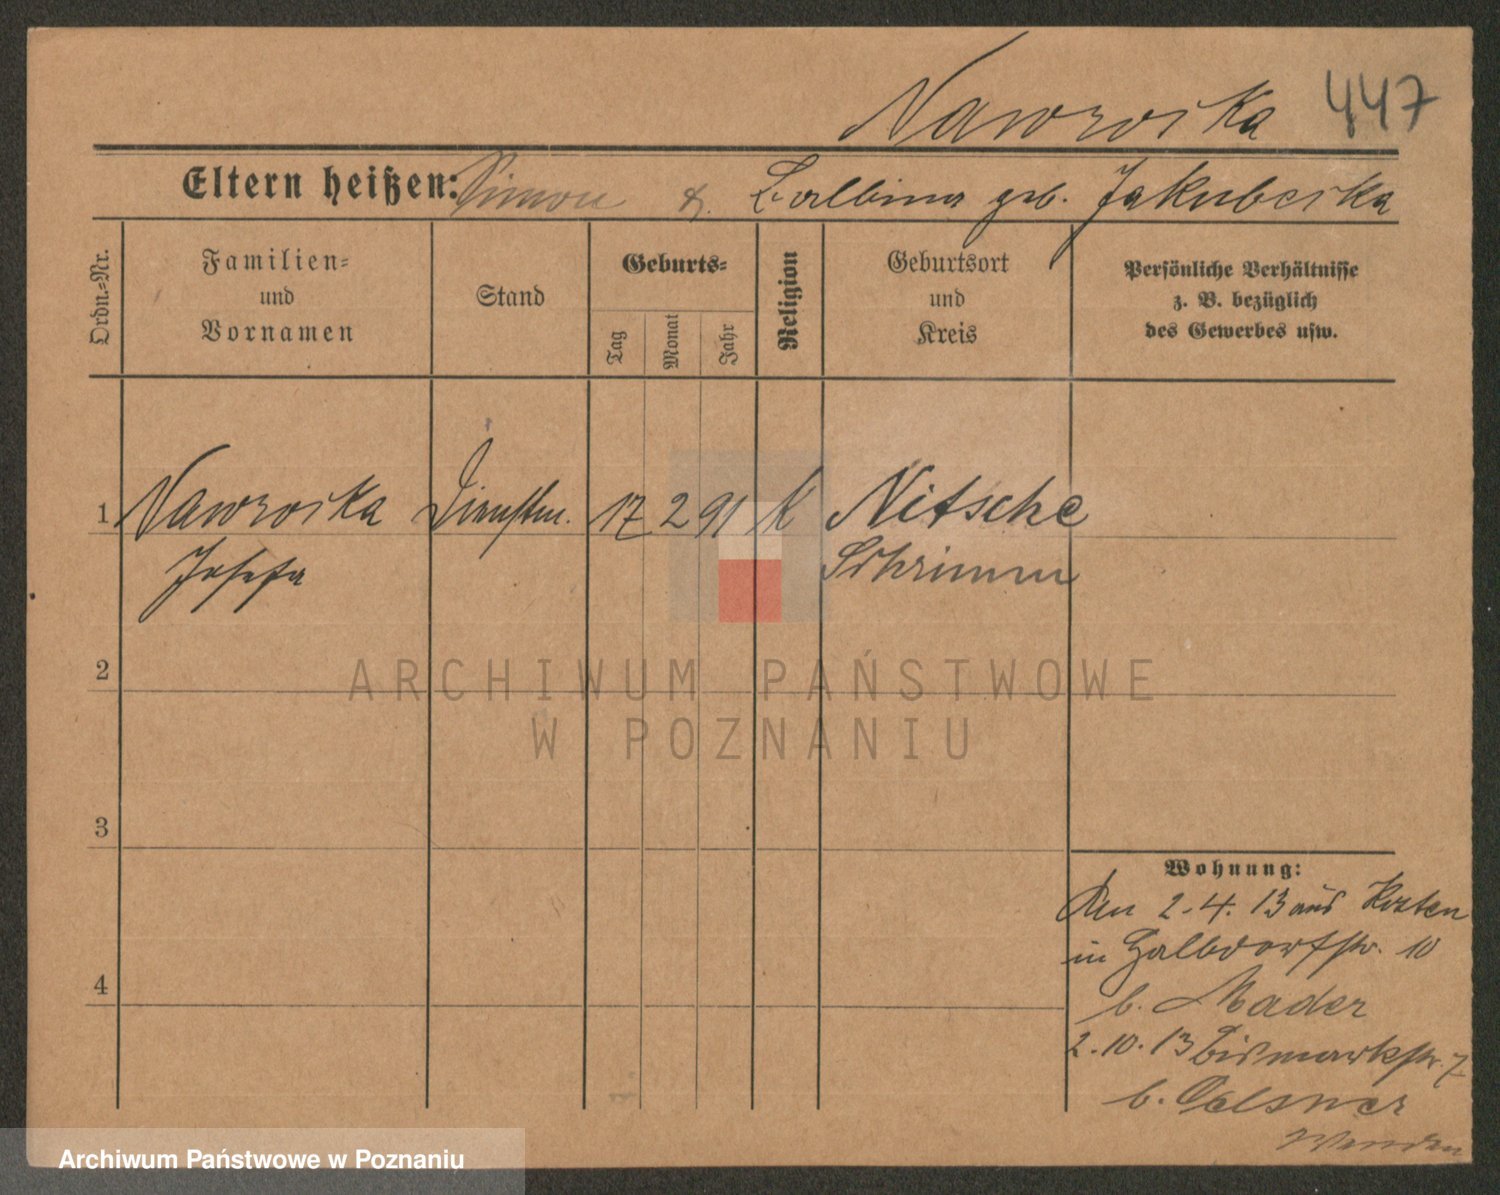 Nawroika 447
Eltern heißen: Simon & Balbina geb. Jakubcika
Ordn.-Nr.
Familien-
und
Vornamen
Stand
Geburts-
Tag
Monat
Jahr
Religion
Geburtsort
und
Kreis
Persönliche Verhältnisse
z. B. bezüglich
des Gewerbes usw.
1 Nawroika Dienstm. 17 2 91 K Nitsche
Josefa Schrimm
2
ARCHIWUM PAŃSTWOWE
W POZNANIU
3
Wohnung:
Den 2.4.13 aus Kosten
in Halbdorfstr. 10
b. Mader
4
2.10.13 Bismarkstr. 7
b. Oelsner
Wenden
Archiwum Państwowe w Poznaniu